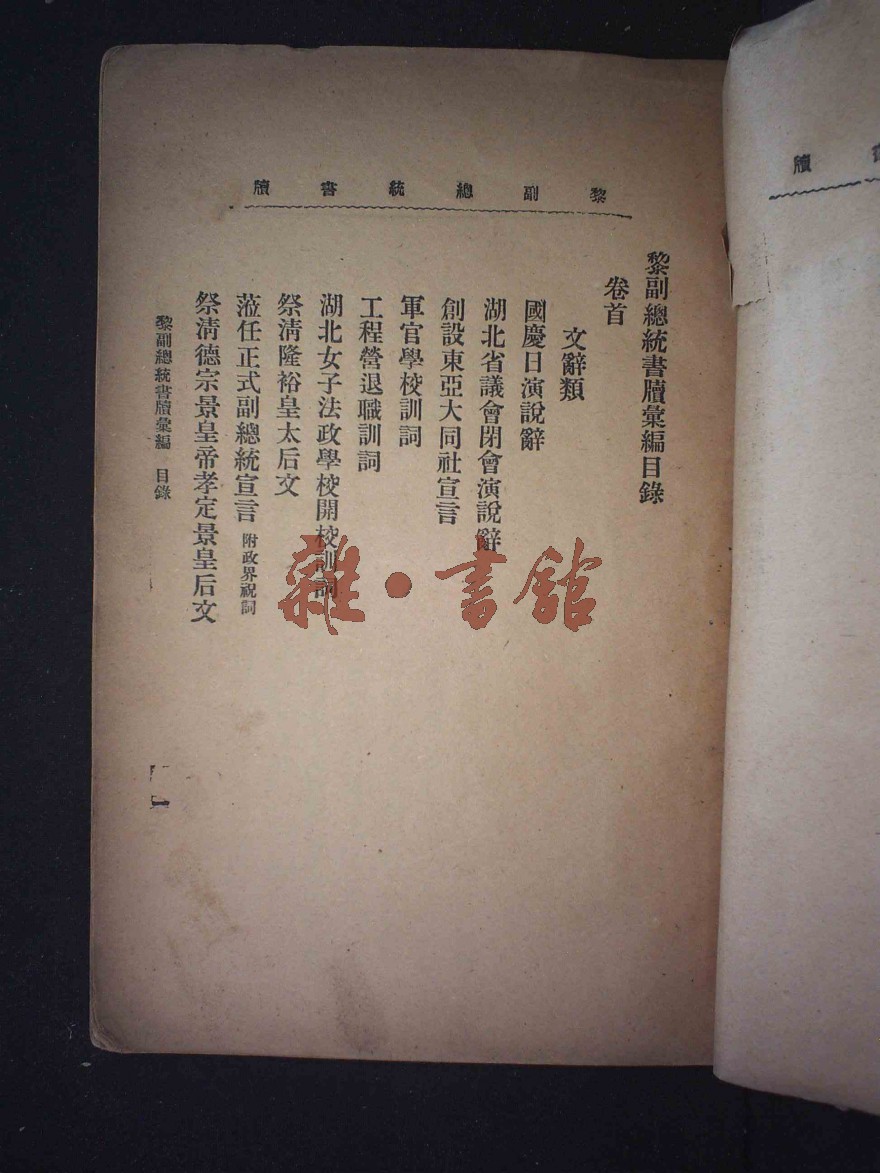 黎副總統書牘
黎副總統書牘彙編目錄
卷首
文辭類
國慶日演說辭
湖北省議會閉會演說辭
創設東亞大同社宣言
軍官學校訓詞
工程營退職訓詞
湖北女子法政學校開校訓詞
祭淸隆裕皇太后文
蒞任正式副總統宣言 附政界祝詞
祭淸德宗景皇帝孝定景皇后文
黎副總統書牘彙編 目錄
一
雜·書館
書牘